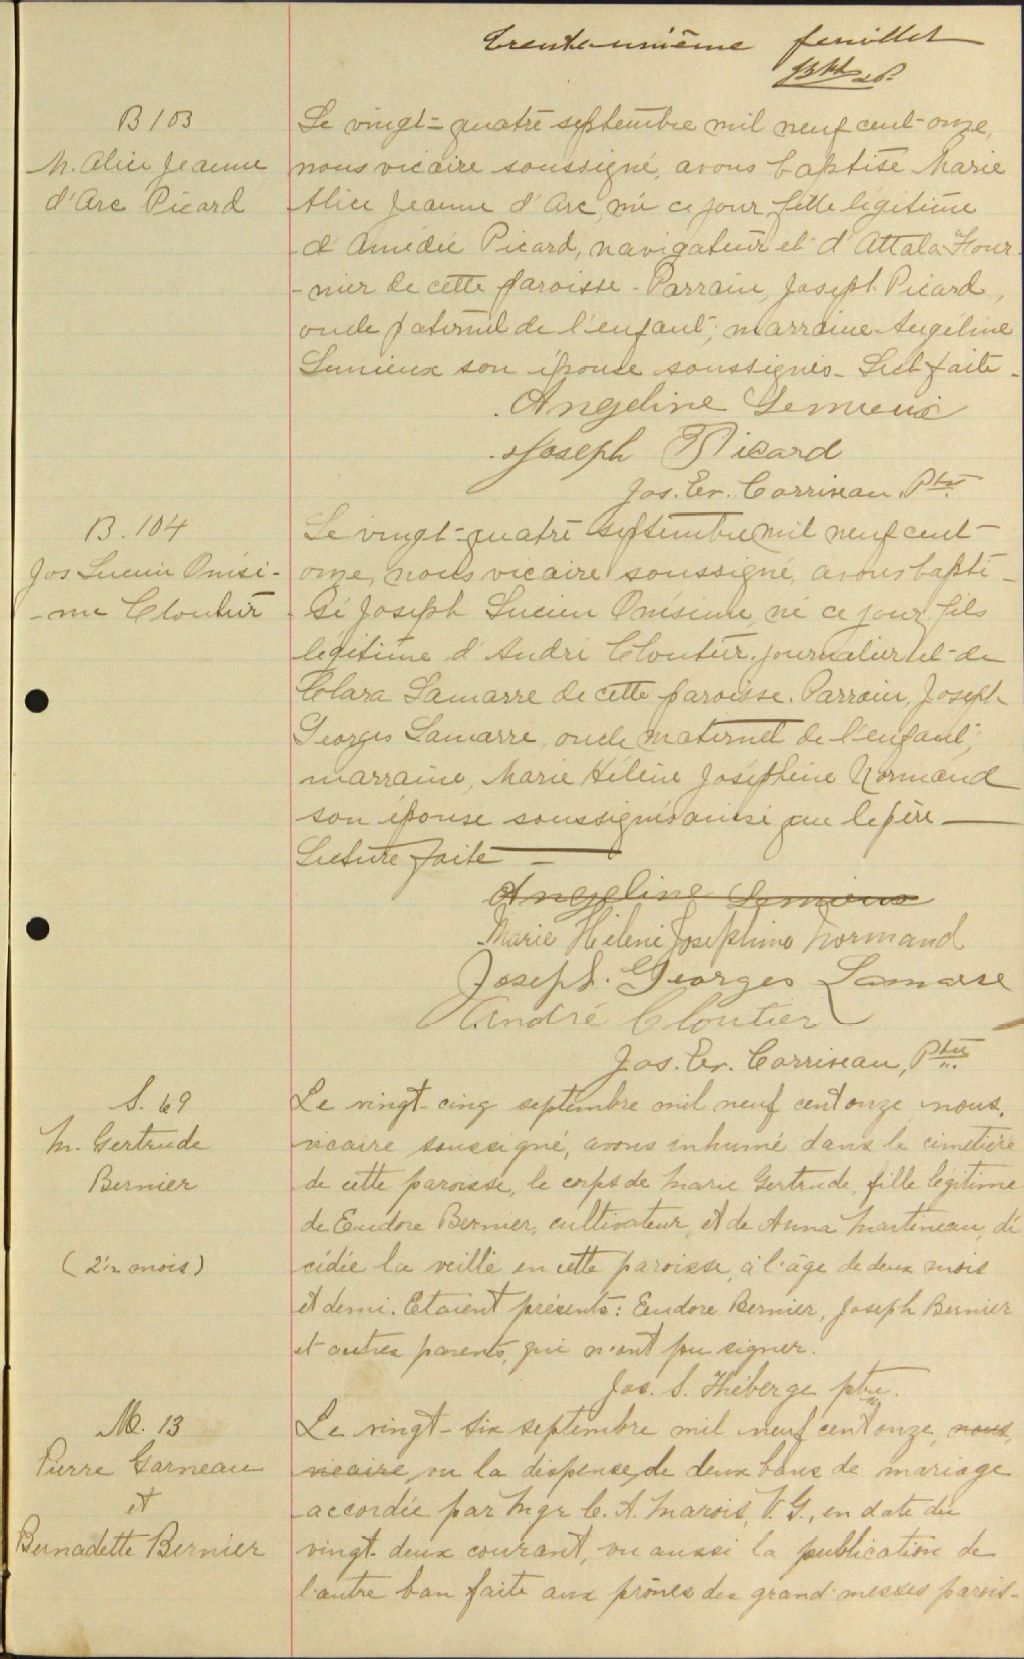 Trente-unième feuillet
B 103
M. Alice Jeanne
d'Arc Picard
Le vingt-quatre septembre mil neuf cent-onze,
nous vicaire soussigné, avons baptisé Marie
Alice Jeanne d'Arc, née ce jour, fille légitime
d'Amédée Picard, navigateur et d'Attala Four-
-nier de cette paroisse. Parrain, Joseph Picard,
oncle paternel de l'enfant; marraine Angéline
Lemieux son épouse soussignés. Lect. faite.
Angeline Lemieux
Joseph Picard
Jos. Er. Corriveau, Ptre
B. 104
Jos Lucien Onési-
-me Cloutier
Le vingt-quatre septembre mil neuf cent-
onze, nous vicaire soussigné, avons bapti-
sé Joseph Lucien Onésime, né ce jour, fils
legitime d'André Cloutier, journalier et de
Clara Lamarre de cette paroisse. Parrain, Joseph
Georges Lamarre, oncle maternel de l'enfant;
marraine, Marie Hélène Joséphine Normand
son épouse soussignés ainsi que le père
Lecture faite
Angeline Lemieux
Marie Hélène Josephine Normand
Joseph. Georges Lamarre
André Cloutier
Jos. Er. Corriveau, Ptre
S. 69
M. Gertrude
Bernier
(2½ mois)
Le vingt-cinq septembre mil neuf cent onze, nous,
vicaire soussigné, avons inhumé dans le cimetière
de cette paroisse, le corps de Marie Gertrude, fille légitime
de Eudore Bernier, cultivateur, et de Anna Martineau, dé
cédée la veille en cette paroisse, à l'âge de deux mois
et demi. Etaient présents: Eudore Bernier, Joseph Bernier
et autres parents, qui n'ont pu signer.
Jos. S. Théberge ptre.
M. 13
Pierre Garneau
et
Bernadette Bernier
Le vingt-six septembre mil neuf cent onze, nous,
vicaire, vu la dispense de deux bans de mariage
accordée par Mgr C. A. Marois, V. G., en date du
vingt-deux courant, vu aussi la publication de
l'autre ban faite aux prônes des grand'messes parois-